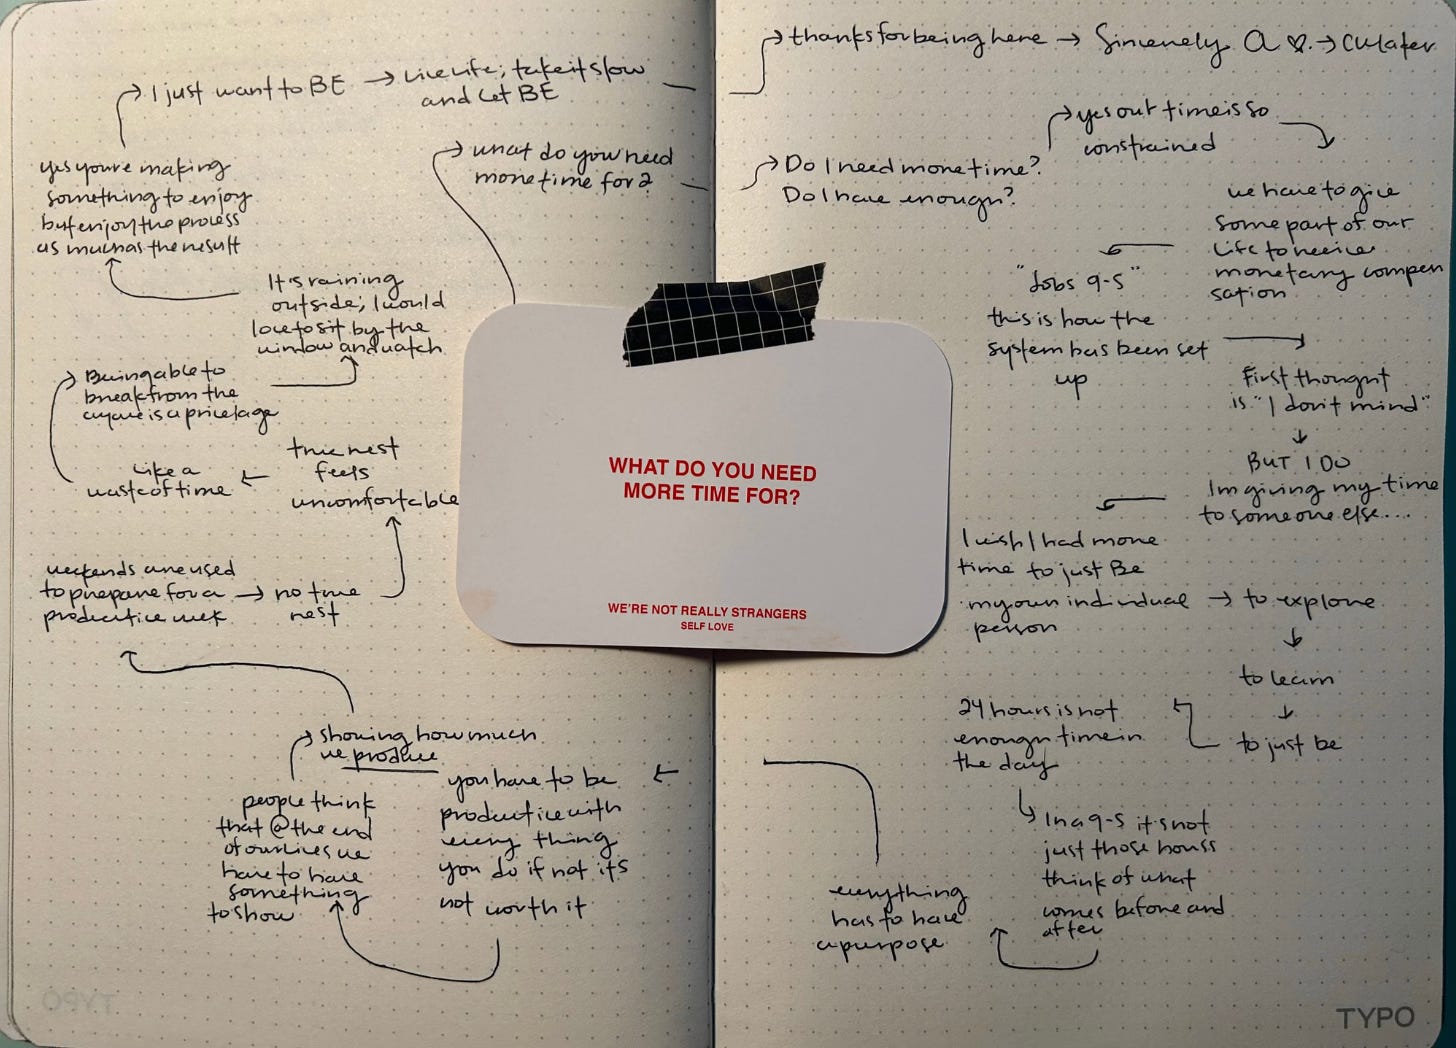 WHAT DO YOU NEED
MORE TIME FOR?
WE'RE NOT REALLY STRANGERS
SELF LOVE
what do you need
more time for?
Do I need more time?
Do I have enough?
yes our time is so
constrained
we have to give
some part of our
life to receive
monetary compen
sation
"Jobs 9-5"
this is how the
system has been set
up
First thought
is "I don't mind"
BUT I DO
Im giving my time
to someone else....
I wish I had more
time to just Be
my own individual
person
to explore
to learn
to just be
24 hours is not
enough time in
the day
In a 9-5 it's not
just those hours
think of what
comes before and
after
everything
has to have
a purpose
you have to be
productive with
every thing
you do if not its
not worth it
people think
that @ the end
of our lives we
have to have
something
to show
showing how much
we produce
weekends are used
to prepare for a
productive week
no true
rest
true rest
feels
uncomfortable
like a
waste of time
Being able to
break from the
cycle is a privelage
It is raining
outside; I would
love to sit by the
window and watch
yes you're making
something to enjoy
but enjoy the process
as much as the result
I just want to BE
Live life; take it slow
and let BE
thanks for being here
Sincerely A
CU later
TYPO